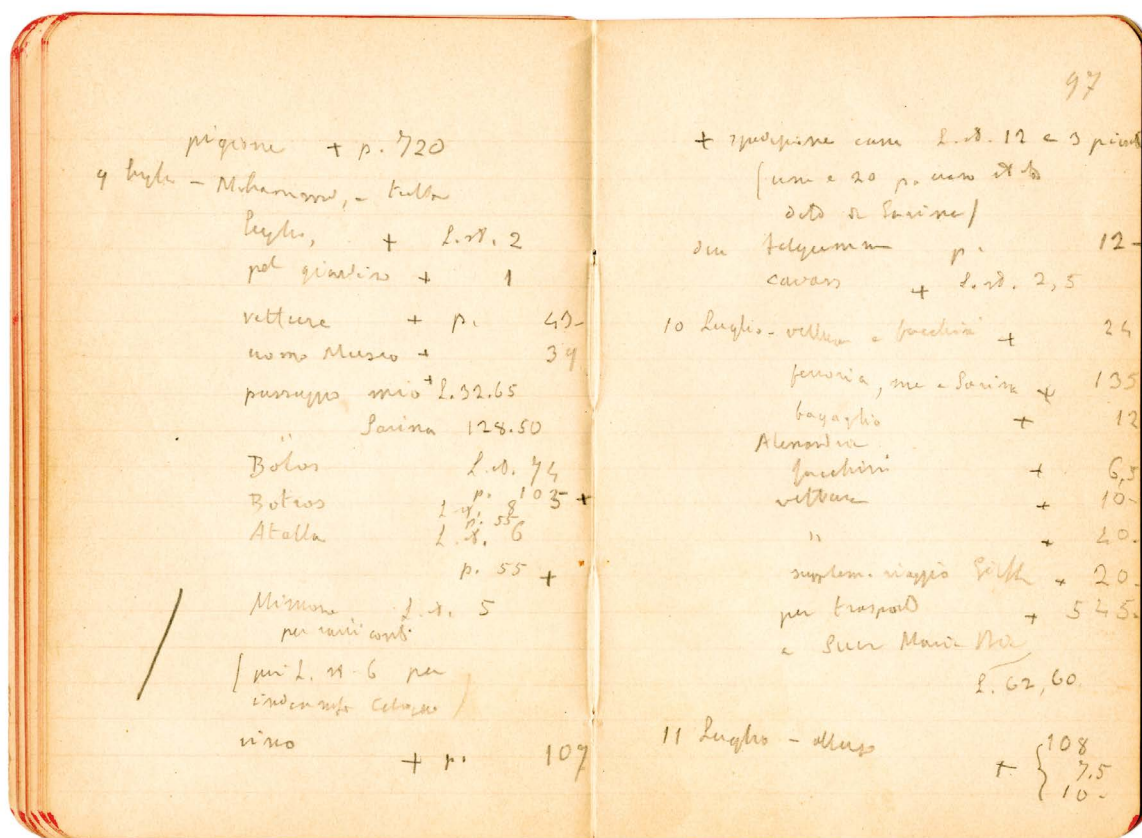 pigione + p. 720
9 luglio - Mohammed, a tutto
luglio, + L. st. 2
pel giardino + 1
vetture + p. 43-
uomo Museo + 39
passaggio mio + L. 32.65
Savina 128.50
Bolos L. st. 74
p. 103 +
Botros L. st. 8 5
p. 55
Atalla L. st. 6
p. 55 +
Missione L. st. 5
per varii conti
(più L. st. 6 per
vino
+ p. 107
97
+ spedizione casse L. st. 12 e 3 piastre
20 p.
dato da Savina)
p. 12-
cavass + L. st. 2,5
10 Luglio - vetture e facchini + 24
ferrovia, me e Savina + 135
bagaglio + 12
Alessandria
facchini + 6,5
vetture + 10-
" + 40-
supplem. viaggio + 20-
per trasporto + 545-
a Suor Maria Pia
L. 62,60
11 Luglio - albergo 108
+ 7.5
10-